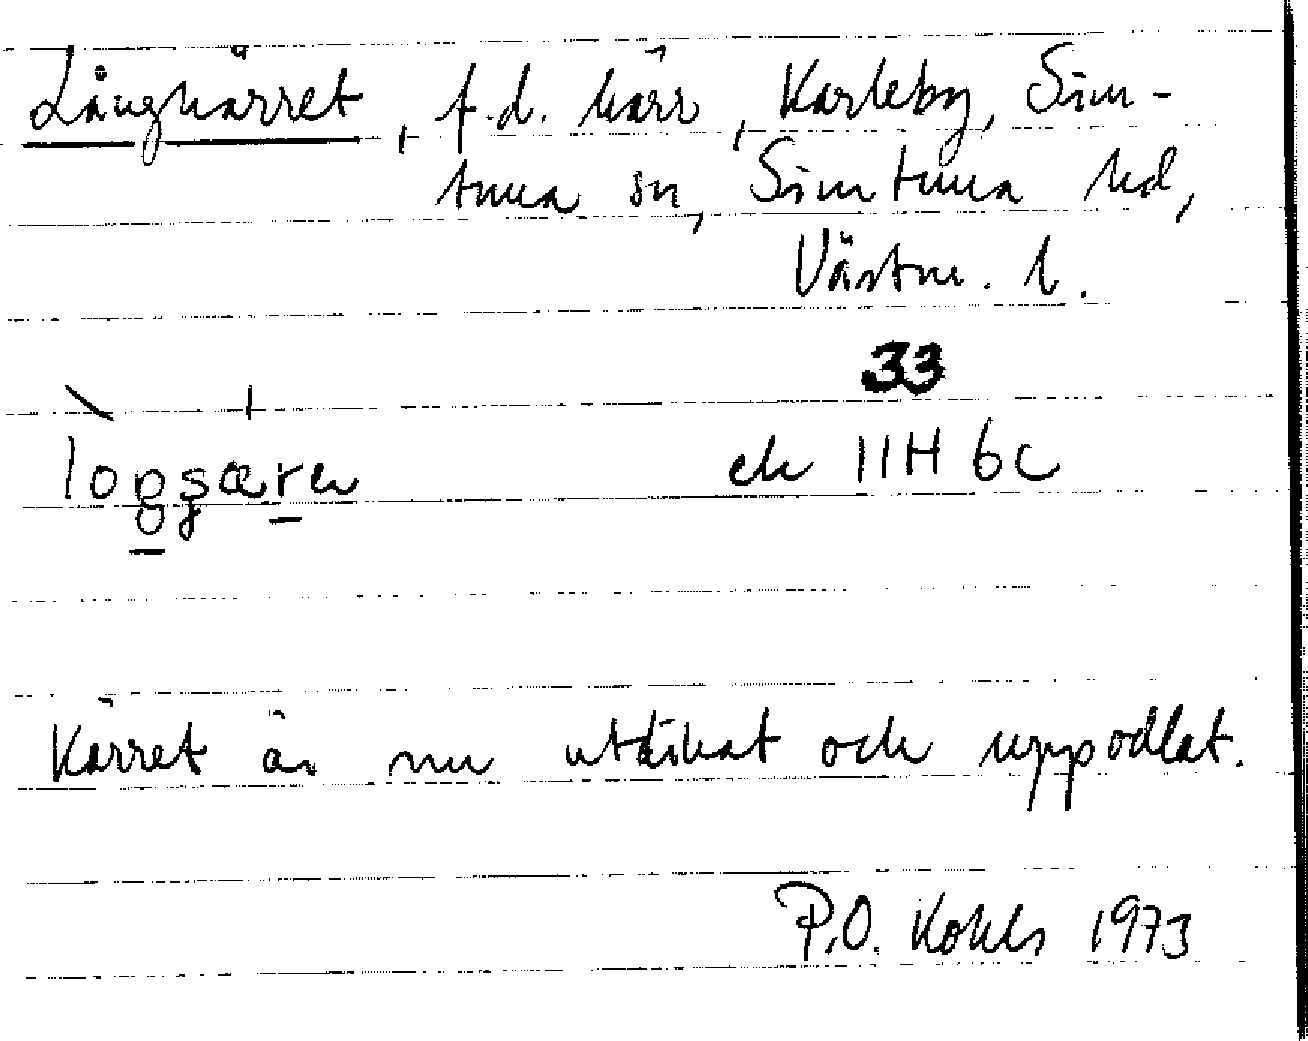 Långkärret, f.d. kärr, Karleby, Sim-
tuna sn, Simtuna hd,
Västm. l.
33
ek 11H 6c
Kärret är nu utdikat och uppodlat.
P.O. Kohls 1973